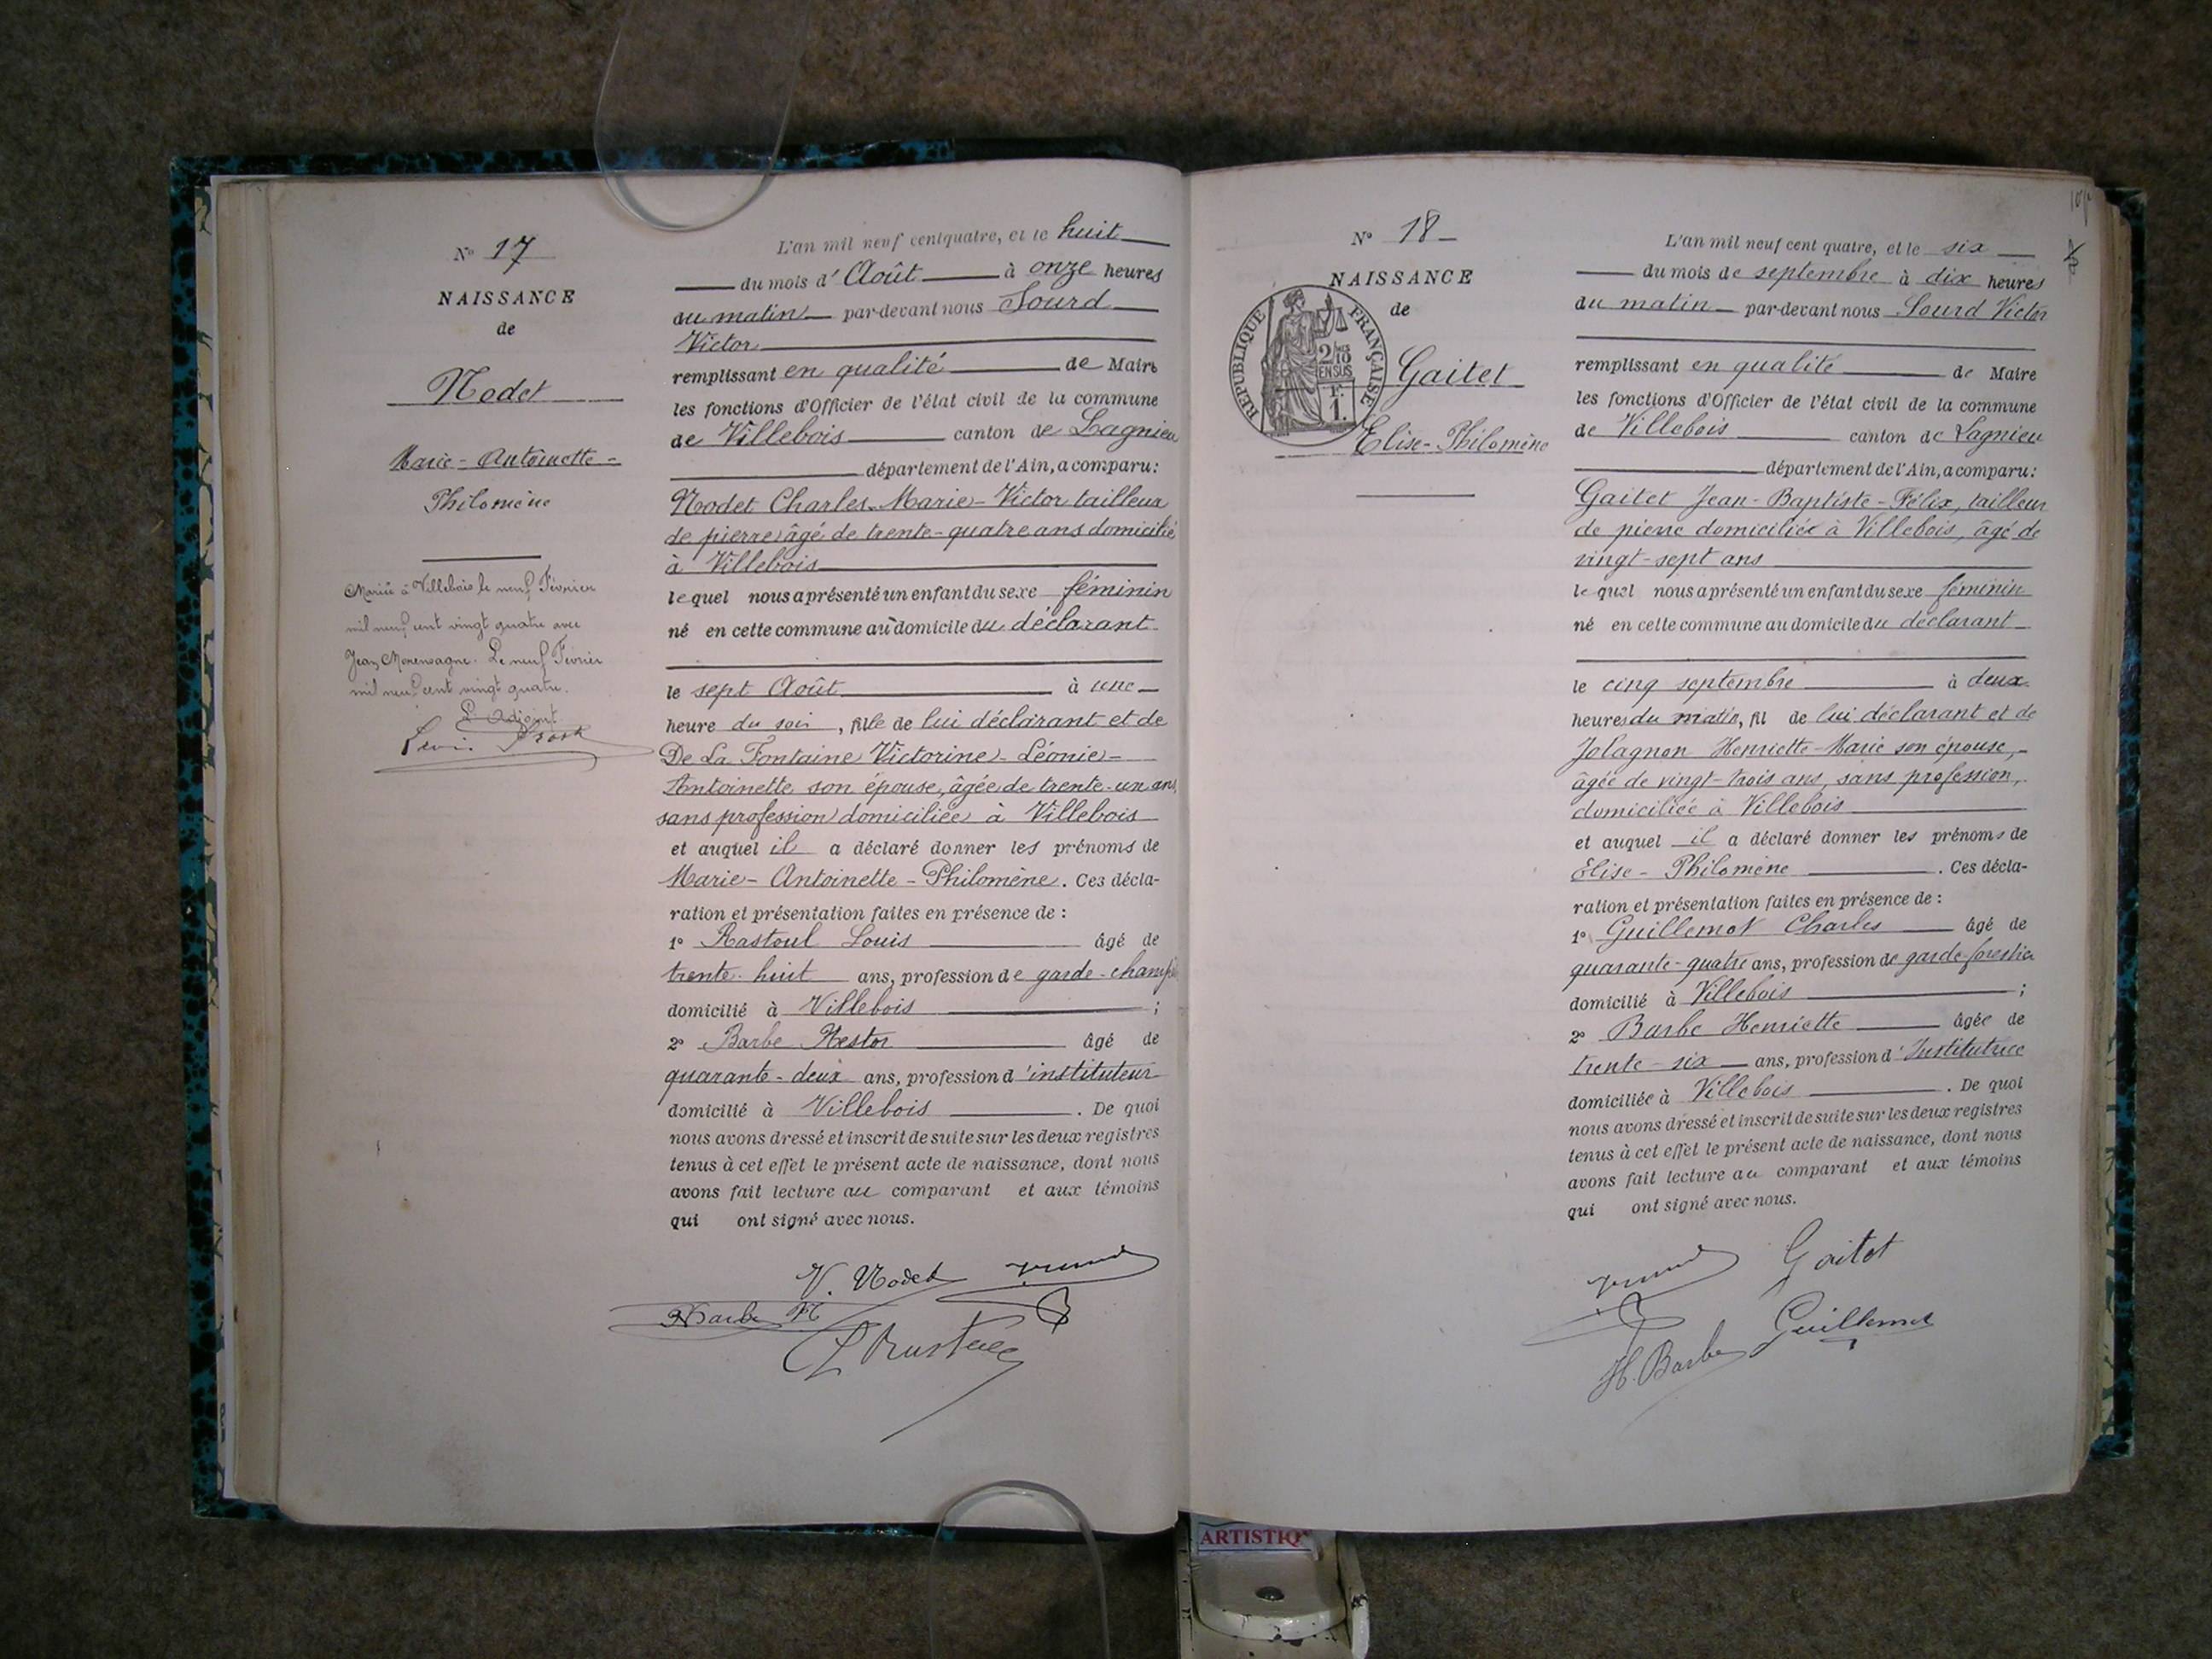 N° 17
NAISSANCE
de
Nodet
Marie-Antoinette-
Philomène
Mariée à Villebois le neuf Février
mil neuf cent vingt quatre avec
Jean. Le neuf Février
mil neuf cent vingt quatre.
L'Adjoint
L'an mil neuf cent quatre, et le huit
du mois d'Août à onze heures
du matin par-devant nous Sourd
Victor
remplissant en qualité de Maire
les fonctions d'Officier de l'état civil de la commune
de Villebois canton de Lagnieu
département de l'Ain, a comparu:
Nodet Charles-Marie-Victor tailleur
de pierre âgé de trente-quatre ans domicilié
à Villebois
lequel nous a présenté un enfant du sexe féminin
né en cette commune au domicile du déclarant
le sept Août à une
heure du soir, fille de lui déclarant et de
De La Fontaine Victorine-Léonie-
Antoinette son épouse, âgée de trente-un ans,
sans profession domiciliée à Villebois
et auquel il a déclaré donner les prénoms de
Marie-Antoinette-Philomène. Ces décla-
ration et présentation faites en présence de :
1° Rastoul Louis âgé de
trente-huit ans, profession de garde-champ
domicilié à Villebois ;
2° Barbe Nestor âgé de
quarante-deux ans, profession d'instituteur
domicilié à Villebois . De quoi
nous avons dressé et inscrit de suite sur les deux registres
tenus à cet effet le présent acte de naissance, dont nous
avons fait lecture au comparant et aux témoins
qui ont signé avec nous.
V. Nodet
Barbe N
N° 18
NAISSANCE
de
REPUBLIQUE FRANÇAISE
2/10
EN SUS
1F.
Gaitet
Elise-Philomène
L'an mil neuf cent quatre, et le six
du mois de septembre à dix heures
du matin par-devant nous Sourd Victor
remplissant en qualité de Maire
les fonctions d'Officier de l'état civil de la commune
de Villebois canton de Lagnieu
département de l'Ain, a comparu:
Gaitet Jean-Baptiste-Félix, tailleur
de pierre domiciliée à Villebois, âgé de
vingt-sept ans
lequel nous a présenté un enfant du sexe féminin
né en cette commune au domicile du déclarant
le cinq septembre à deux
heures du matin, fil de lui déclarant et de
Jolagnon Henriette-Marie son épouse,
âgée de vingt-trois ans, sans profession,
domiciliée à Villebois
et auquel il a déclaré donner les prénoms de
Elise-Philomène . Ces décla-
ration et présentation faites en présence de :
1° Guillemot Charles âgé de
quarante-quatre ans, profession de garde-forestier
domicilié à Villebois ;
2° Barbe Henriette âgée de
trente-six ans, profession d'Institutrice
domiciliée à Villebois . De quoi
nous avons dressé et inscrit de suite sur les deux registres
tenus à cet effet le présent acte de naissance, dont nous
avons fait lecture au comparant et aux témoins
qui ont signé avec nous.
Gaitet
Guillemot
H. Barbe
ARTISTIQ